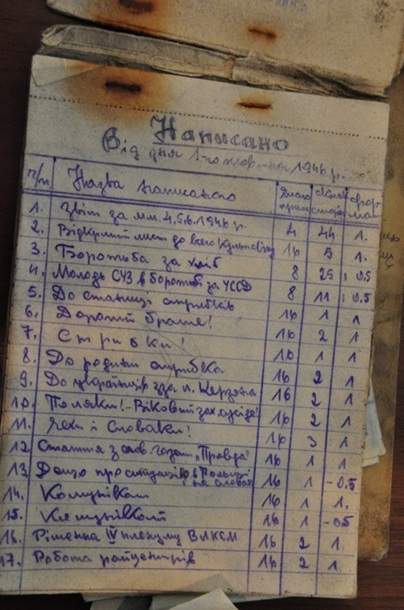 Написано
Від дня 1-го жовтня 1946 р.
ч/п Назва написаного
1. Звіт за м.м. 4.5.6.1946 р. 4 44 1.
2. Відкритий лист до всего 16 5 1.
3. Боротьба за хліб 8 25 0.5
4. Молодь СУЗ в боротьбі за УССД 8 11 0.5
5. До станиць 16 1 1
6. Дорогий брате! 16 2 1
7. Стрибки! 16 1 1
8. До родини стрибка 16 2 1
9. До українців зза л. Керзона 16 2 1
10. Поляки! - Віковий 16 2 1
11. Чехи і Словаки! 16 3 1
12. Стаття з газети „Правда" 16 1 1
13. Дещо про ситуацію в Польщі 16 1 - 0.5
14. 16 1 1.
15. 16 1 - 05
16. Рішення IV пленуму ВЛКСМ 16 2 1
17. Робота райцентрів 16 2 1